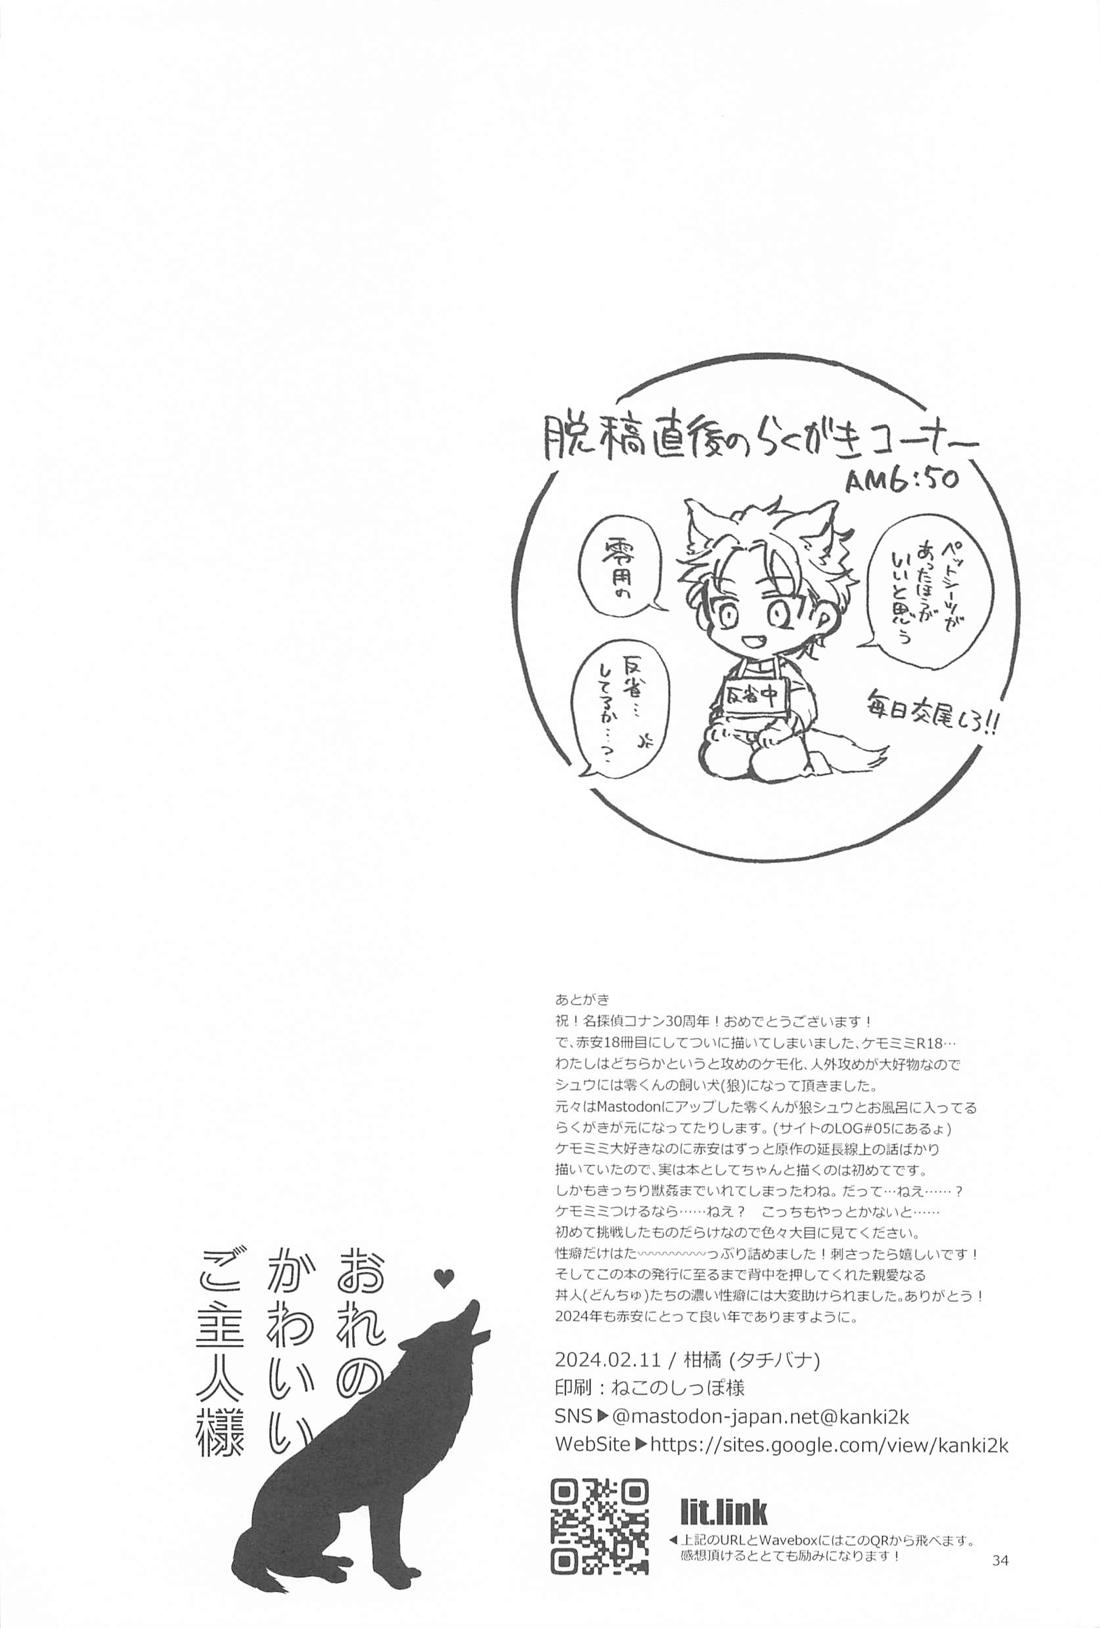 脱稿直後のらくがきコーナー
AM6:50
ペットシーツが
あったほうが
いいと思う
零用の
反省…
してるか…？
反省中
毎日交尾しろ!!
あとがき
祝！名探偵コナン30周年！おめでとうございます！
で、赤安18冊目にしてついに描いてしまいました、ケモミミR18…
わたしはどちらかというと攻めのケモ化、人外攻めが大好物なので
シュウには零くんの飼い犬(狼)になって頂きました。
元々はMastodonにアップした零くんが狼シュウとお風呂に入ってる
らくがきが元になってたりします。(サイトのLOG#05にあるょ)
ケモミミ大好きなのに赤安はずっと原作の延長線上の話ばかり
描いていたので、実は本としてちゃんと描くのは初めてです。
しかもきっちり獣姦までいれてしまったわね。だって…ねえ……？
ケモミミつけるなら……ねえ？　こっちもやっとかないと……
初めて挑戦したものだらけなので色々大目に見てください。
性癖だけはた〰〰〰〰〰っぷり詰めました！刺さったら嬉しいです！
そしてこの本の発行に至るまで背中を押してくれた親愛なる
丼人(どんちゅ)たちの濃い性癖には大変助けられました。ありがとう！
2024年も赤安にとって良い年でありますように。
おれの
かわいい
ご主人様
2024.02.11 / 柑橘 (タチバナ)
印刷：ねこのしっぽ様
SNS▶@mastodon-japan.net@kanki2k
WebSite▶https://sites.google.com/view/kanki2k
lit.link
◀上記のURLとWaveboxにはこのQRから飛べます。
感想頂けるととても励みになります！
34